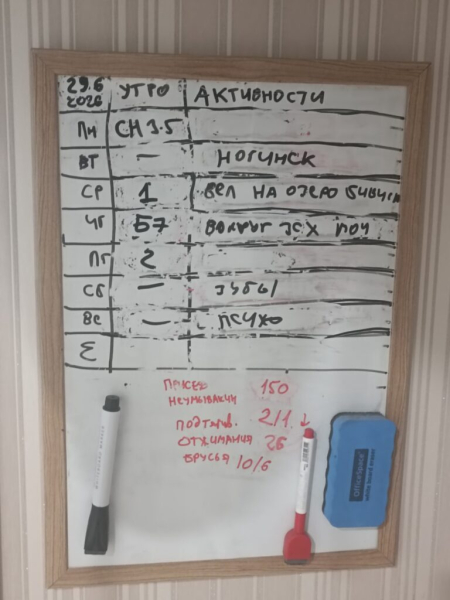 29.6 УТРО АКТИВНОСТИ
2026
ПН СН 3.5
ВТ — НОГИНСК
СР 1 ВЕЛ НА ОЗЕРО
ЧТ Б7 ВОКРУГ
ПТ 2
СБ — ЗУБЫ
ВС — ПСИХО
Σ
150
2/1 ↓
ОТЖИМАНИЯ 26
БРУСЬЯ 10/6
OfficeSpace